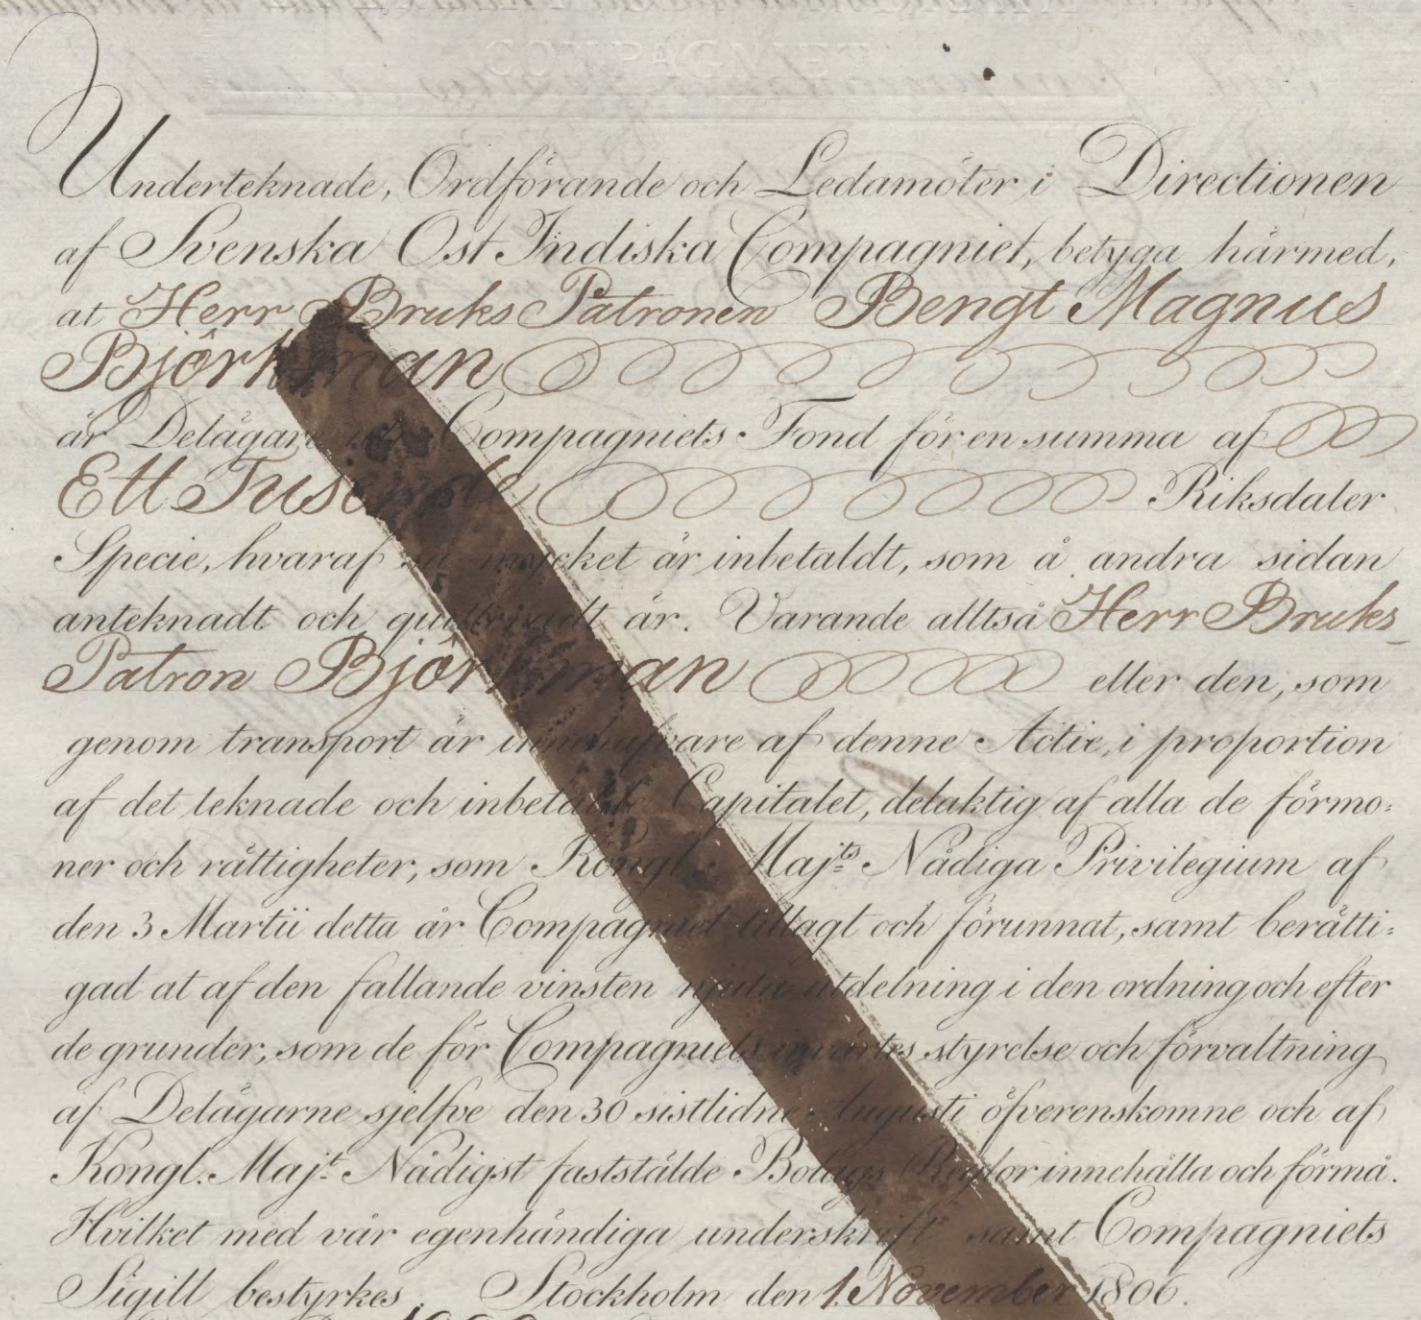 COMPAGNIET
Underteknade, Ordförande och Ledamöter i Directionen
af Svenska Ost Indiska Compagniet, betyga härmed,
at Herr Bruks Patronen Bengt Magnus
Björkman
är Delägare Compagniets Fond för en summa af
Ett Tusende Riksdaler
Specie, hvaraf så mycket är inbetaldt, som å andra sidan
anteknadt och quitteradt är. Varande alltså Herr Bruks
Patron Björkman eller den, som
genom transport är innehafvare af denne Actie, i proportion
af det teknade och inbetalde Capitalet, delaktig af alla de förmo:
ner och rättigheter, som Kongl: Maj:ts Nådiga Privilegium af
den 3 Martii detta år Compagniet tillagt och förunnat, samt berätti:
gad at af den fallande vinsten njuta utdelning i den ordning och efter
de grunder, som de för Compagniets inwärtes styrelse och förvaltning
af Delägarne sjelfve den 30 sistlidne Augusti öfverenskomne och af
Kongl. Maj:t Nådigst faststälde Bolags Reglor innehålla och förmå.
Hvilket med vår egenhändiga underskrift samt Compagniets
Sigill bestyrkes. Stockholm den 1. November 1806.